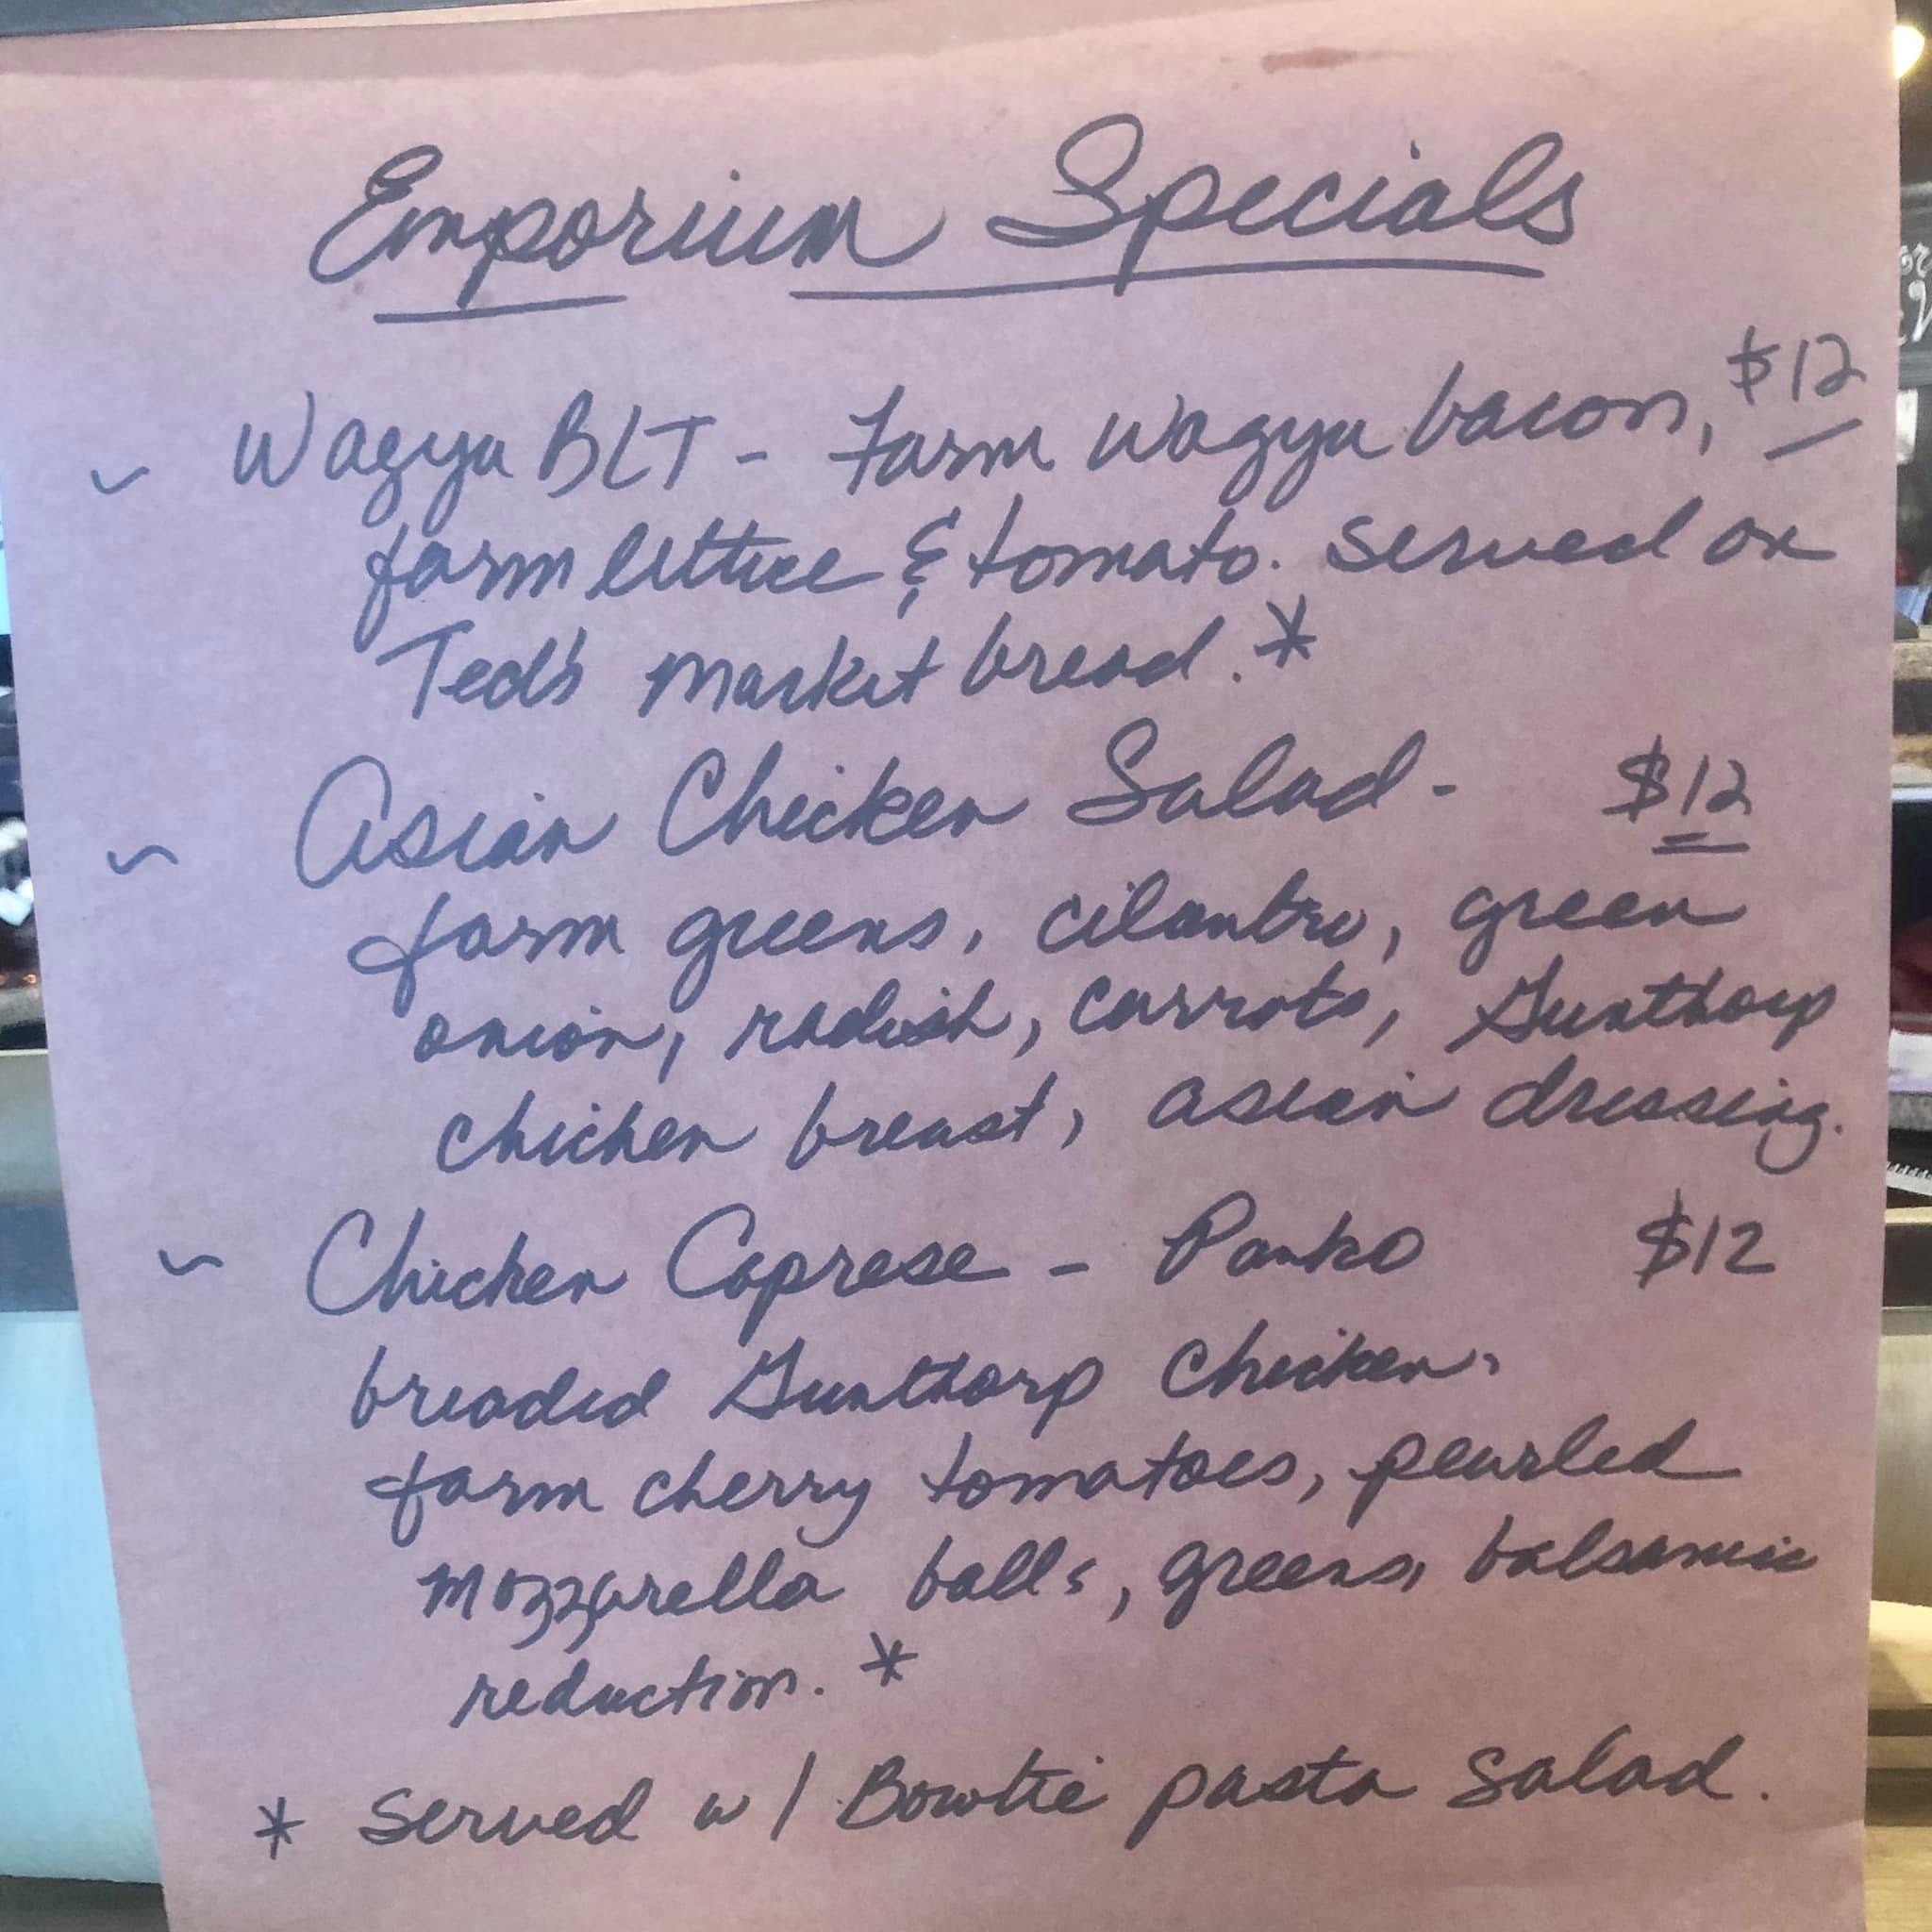 Emporium Specials
~ Wagyu BLT - Farm wagyu bacon, $12
farm lettuce & tomato. Served on
Ted's Market bread. *
~ Asian Chicken Salad - $12
farm greens, cilantro, green
onion, radish, carrots, Gunthorp
chicken breast, asian dressing.
~ Chicken Caprese - Panko $12
breaded Gunthorp chicken,
farm cherry tomatoes, pearled
mozzarella balls, greens, balsamic
reduction. *
* Served w/ Bowtie pasta salad.